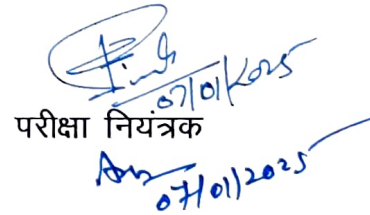 07/01/2025
परीक्षा नियंत्रक
07/01/2025